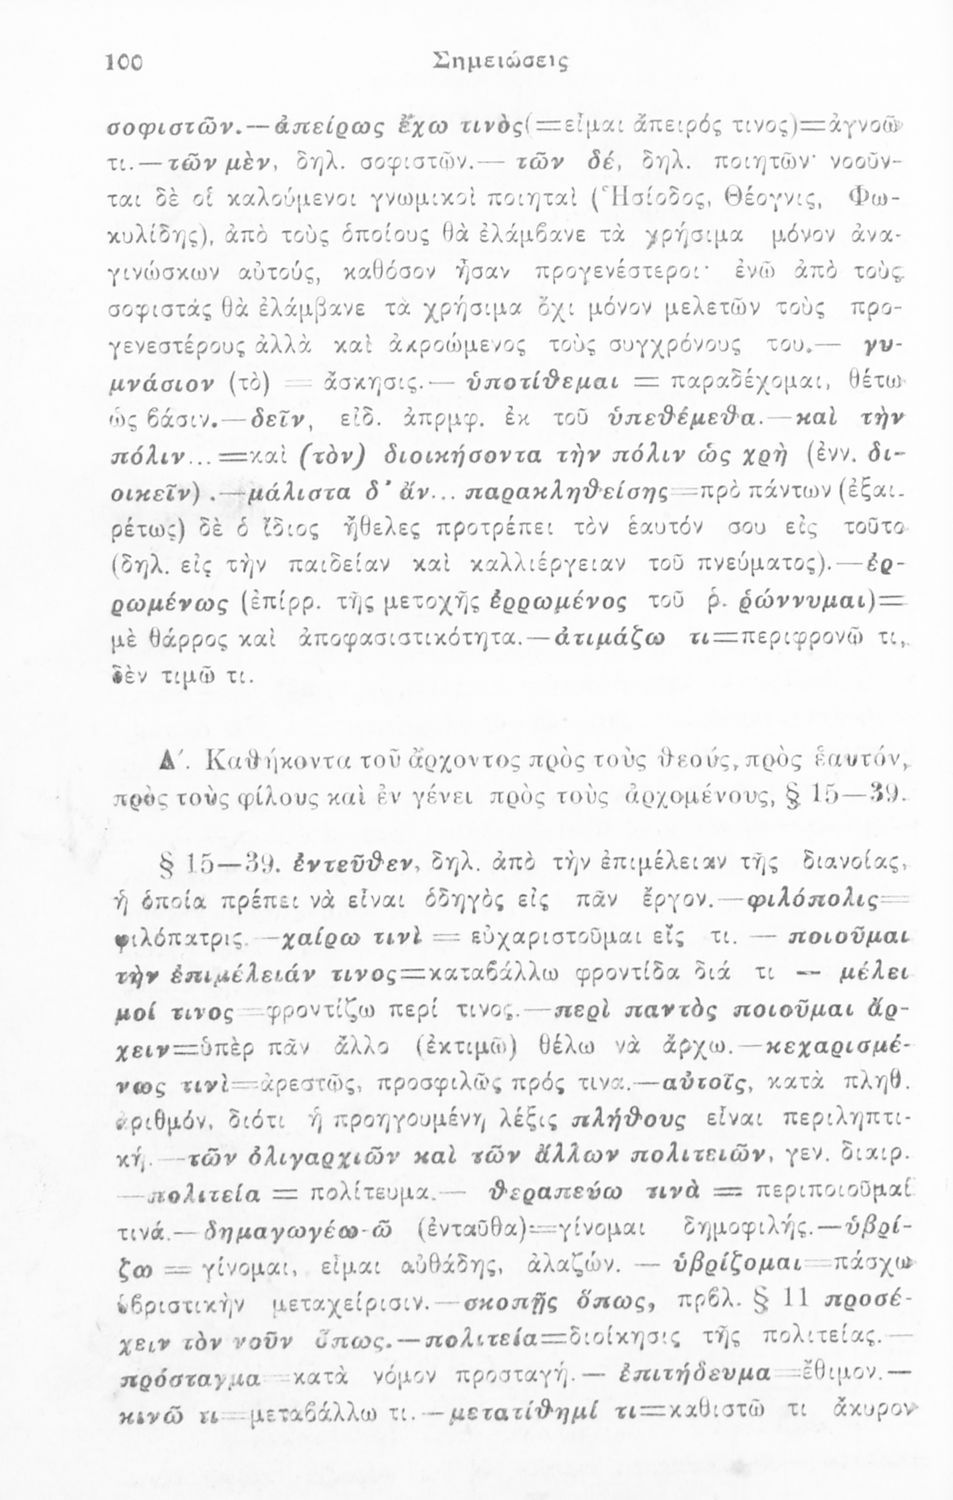 100 Σημειώσεις
σοφιστῶν.—ἀπείρως ἔχω τινὸς(=εἶμαι ἄπειρός τινος)=ἀγνοῶ
τι.—τῶν μὲν, δηλ. σοφιστῶν.— τῶν δέ, δηλ. ποιητῶν· νοοῦν-
ται δὲ οἱ καλούμενοι γνωμικοὶ ποιηταὶ (Ἡσίοδος, Θέογνις, Φω-
κυλίδης), ἀπὸ τοὺς ὁποίους θὰ ἐλάμβανε τὰ χρήσιμα μόνον ἀνα-
γινώσκων αὐτούς, καθόσον ἦσαν προγενέστεροι· ἐνῶ ἀπὸ τοὺς
σοφιστὰς θὰ ἐλάμβανε τὰ χρήσιμα ὄχι μόνον μελετῶν τοὺς προ-
γενεστέρους ἀλλὰ καὶ ἀκροώμενος τοὺς συγχρόνους του.— γυ-
μνάσιον (τὸ) = ἄσκησις.— ὑποτίθεμαι = παραδέχομαι, θέτω
ὡς βάσιν.—δεῖν, εἰδ. ἀπρμφ. ἐκ τοῦ ὑπεθέμεθα.—καὶ τὴν
πόλιν...=καὶ (τὸν) διοικήσοντα τὴν πόλιν ὡς χρὴ (ἐνν. δι-
οικεῖν).—μάλιστα δ' ἄν... παρακληθείσης=πρὸ πάντων (ἐξαι-
ρέτως) δὲ ὁ ἴδιος ἤθελες προτρέπει τὸν ἑαυτόν σου εἰς τοῦτο
(δηλ. εἰς τὴν παιδείαν καὶ καλλιέργειαν τοῦ πνεύματος).—ἐρ-
ρωμένως (ἐπίρρ. τῆς μετοχῆς ἐρρωμένος τοῦ ῥ. ῥώννυμαι)=
μὲ θάρρος καὶ ἀποφασιστικότητα.—ἀτιμάζω τι=περιφρονῶ τι,
δὲν τιμῶ τι.
Α΄. Καθήκοντα τοῦ ἄρχοντος πρὸς τοὺς θεούς, πρὸς ἑαυτόν,
πρὸς τοὺς φίλους καὶ ἐν γένει πρὸς τοὺς ἀρχομένους, § 15—39.
§ 15—39. ἐντεῦθεν, δηλ. ἀπὸ τὴν ἐπιμέλειαν τῆς διανοίας,
ἡ ὁποία πρέπει νὰ εἶναι ὁδηγὸς εἰς πᾶν ἔργον.—φιλόπολις=
φιλόπατρις.—χαίρω τινὶ = εὐχαριστοῦμαι εἴς τι. — ποιοῦμαι
τὴν ἐπιμέλειάν τινος=καταβάλλω φροντίδα διά τι — μέλει
μοί τινος=φροντίζω περί τινος.—περὶ παντὸς ποιοῦμαι ἄρ-
χειν=ὑπὲρ πᾶν ἄλλο (ἐκτιμῶ) θέλω νὰ ἄρχω.—κεχαρισμέ-
νως τινὶ=ἀρεστῶς, προσφιλῶς πρός τινα.—αὐτοῖς, κατὰ πληθ.
ἀριθμόν, διότι ἡ προηγουμένη λέξις πλήθους εἶναι περιληπτι-
κή.—τῶν ὀλιγαρχιῶν καὶ τῶν ἄλλων πολιτειῶν, γεν. διαιρ.
—πολιτεία = πολίτευμα.— θεραπεύω τινὰ = περιποιοῦμαί
τινά.—δημαγωγέω-ῶ (ἐνταῦθα)=γίνομαι δημοφιλής.—ὑβρί-
ζω = γίνομαι, εἶμαι αὐθάδης, ἀλαζών. — ὑβρίζομαι=πάσχω
ὑβριστικὴν μεταχείρισιν.—σκοπῇς ὅπως, πρβλ. § 11 προσέ-
χειν τὸν νοῦν ὅπως.—πολιτεία=διοίκησις τῆς πολιτείας.—
πρόσταγμα=κατὰ νόμον προσταγή.— ἐπιτήδευμα=ἔθιμον.—
κινῶ τι=μεταβάλλω τι.—μετατίθημί τι=καθιστῶ τι ἄκυρον